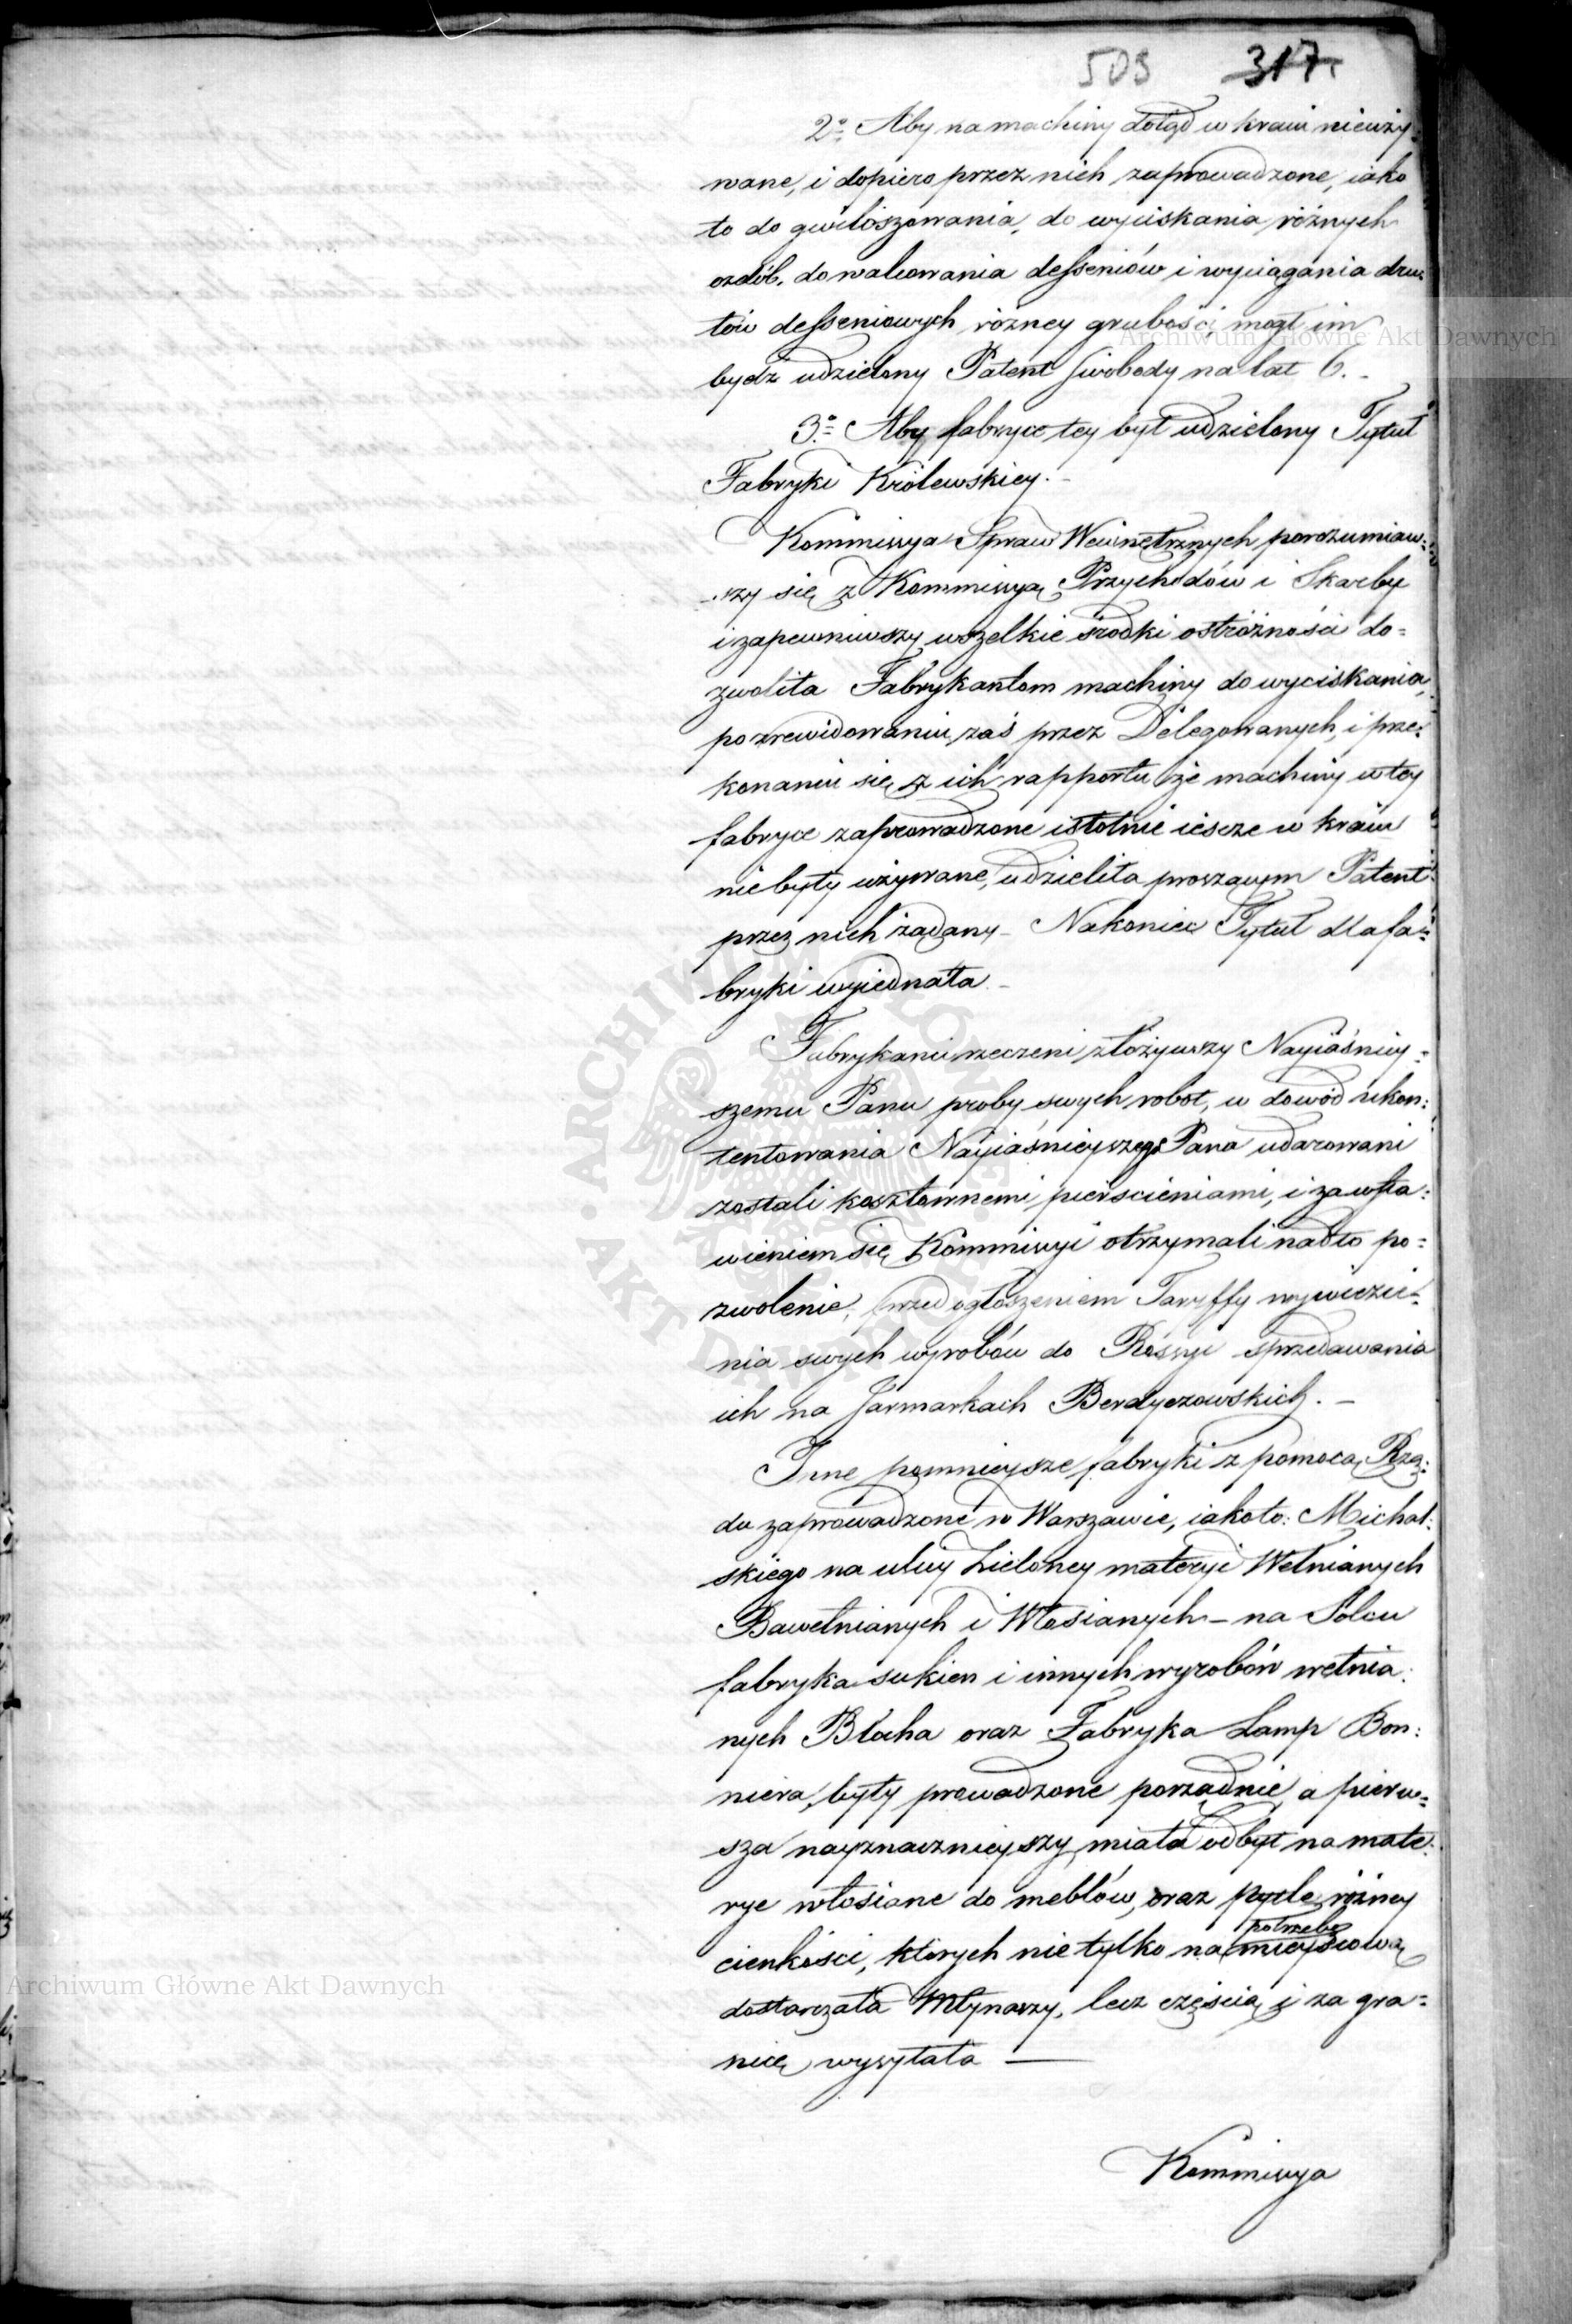 505 317.
2o Aby na machiny dotąd w kraiu nieuży=
wane, i dopiero przez nich zaprowadzone, iako
to do gwiloszowania, do wyciskania różnych
ozdób, do walcowania desseniów i wyciągania dru=
tów desseniowych rózney grubości, mogł im
bydź udzielony Patent Swobody na lat 6. -
3o Aby fabryce tey był udzielony Tytuł
Fabryki Królewskiey. -
Kommissya Spraw Wewnętrznych porozumiaw=
szy się z Kommissyą Przychodów i Skarbu
i zapewniwszy wszelkie środki ostróżności do=
zwoliła Fabrykantom machiny do wyciskania,
po zrewidowaniu zaś przez Delegowanych, i prze=
konaniu się z ich rapportu że machiny w tey
fabryce zaprowadzone istotnie iescze w kraiu
nie były używane, udzieliła proszącym Patent
przez nich żądany - Nakoniec Tytuł dla fa=
bryki wyiednała -
Fabrykanci rzeczeni złożywszy Nayiaśniey=
szemu Panu proby swych robot, w dowód ukon=
tentowania Nayiaśnieyszego Pana udarowani
zostali kosztownemi pierscieniami, i za wsta=
wieniem się Kommissyi otrzymali nadto po=
zwolenie, przed ogłoszeniem Taryffy wywiezie=
nia swych wyrobów do Rossyi sprzedawania
ich na Jarmarkach Berdyczowskich. -
Inne pomnieysze fabryki z pomocą Rzą=
du zaprowadzone w Warszawie, iakoto: Michal=
skiego na ulicy Zieloney materyi Wełnianych
Bawełnianych i Włosianych - na Solcu
fabryka sukien i innych wyrobów wełnia=
nych Blaha oraz Fabryka Lamp Bon=
niera, były prowadzone porządnie, a pierw=
sza nayznacznieyszy miała odbyt na mate=
rye włosiane do meblów, oraz pytle różney
potrzebę
cienkości, których nie tylko na mieyscową
dostarczała Młynarzy, lecz częścią i za gra=
nicę wysyłała —
Kommissya
Archiwum Główne Akt Dawnych
Archiwum Główne Akt Dawnych
ARCHIWUM GŁÓWNE · AKT DAWNYCH ·